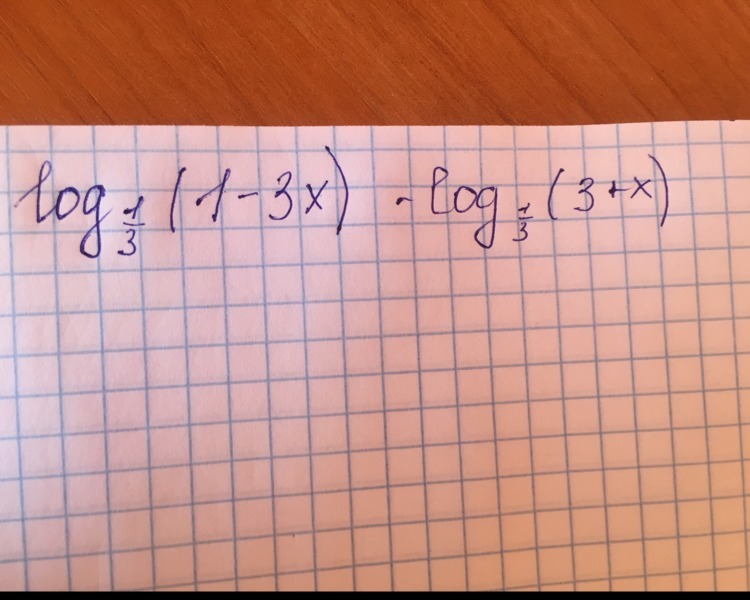 log_{1/3} (1-3x) - log_{1/3} (3+x)